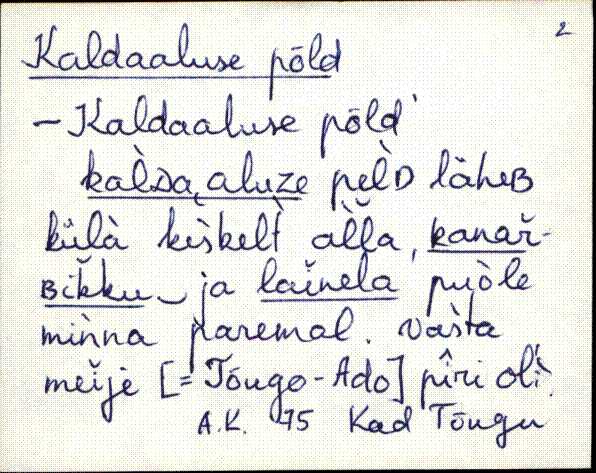 2
Kaldaaluse põld
- Kaldaaluse põld'
kal̀Da͔aluze pel̀D läheB
külà kès̀kel̀t al̀l̆a, kanar̆-
Bik̆ku ja lain̆ela puòle
min̆na paremal. vas̆ta
meije [=Tóugo-Ado] pîri oli.
A.K. 75 Kad Tõugu